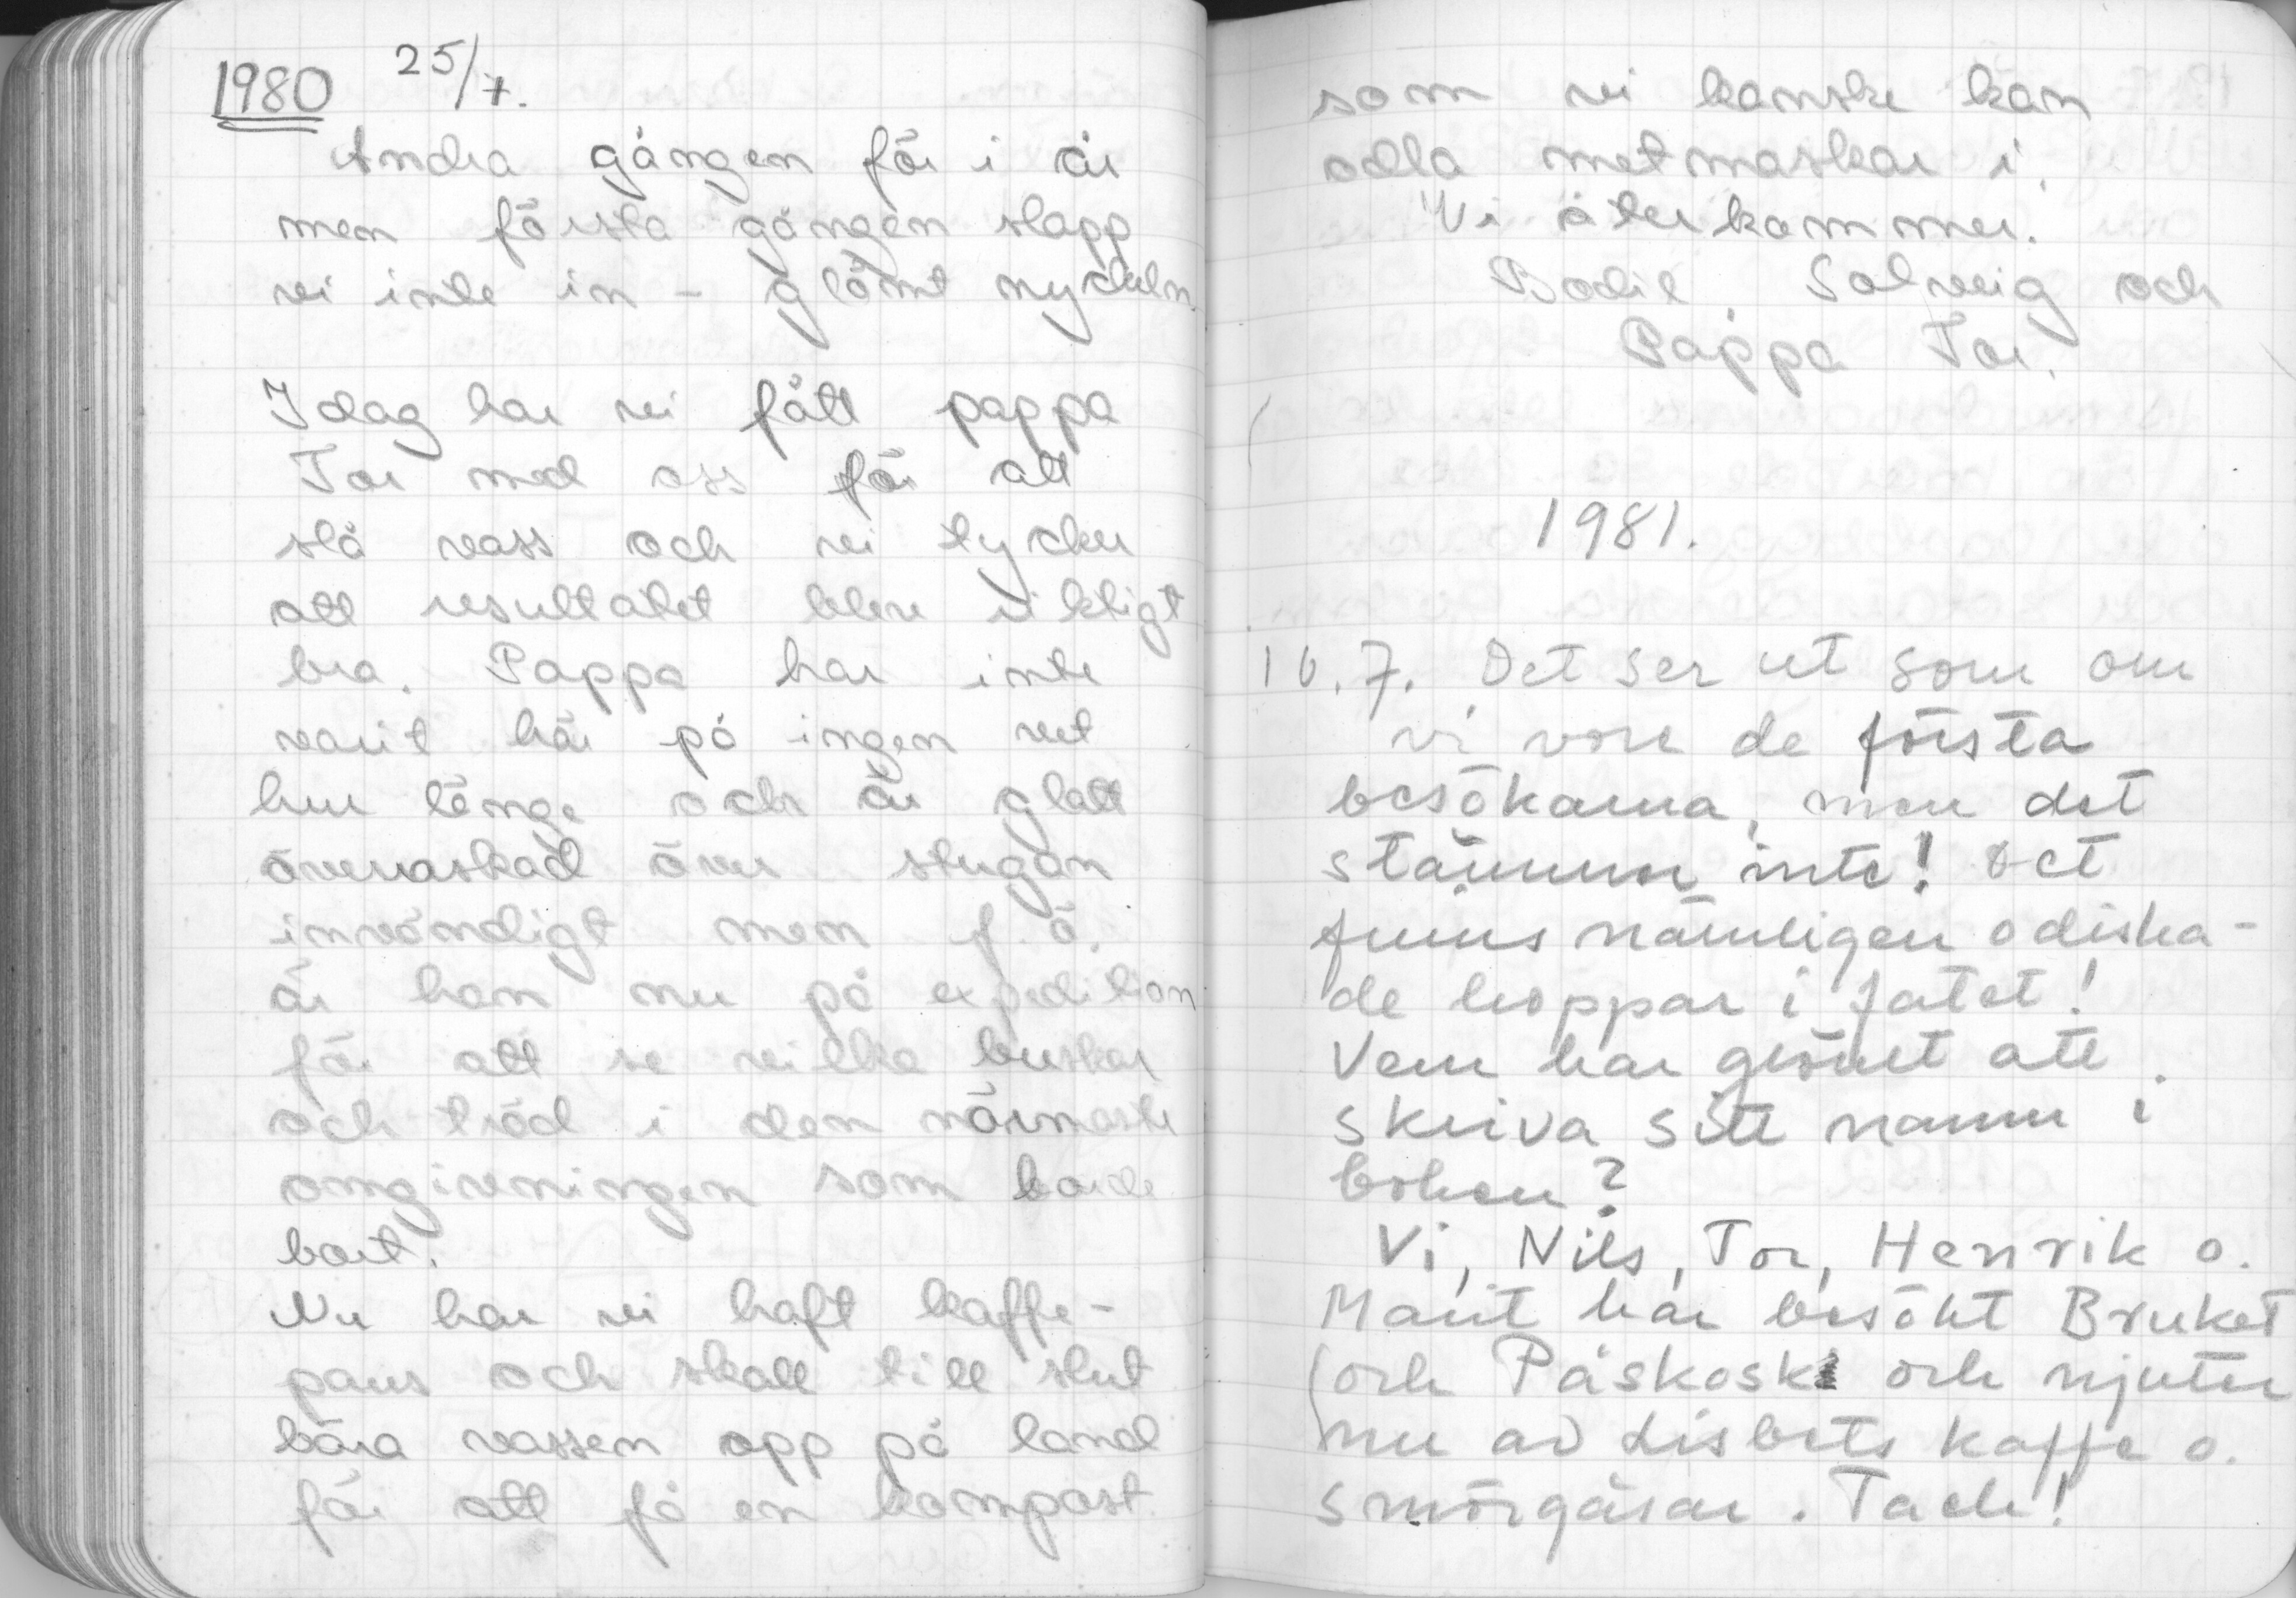 1980 25/7.
Andra gången för i år
men första gången slapp
vi inte in - glömt nyckeln
Idag har vi fått pappa
Tor med oss för att
slå vass och vi tycker
att resultatet blev riktigt
bra. Pappa har inte
varit här på ingen vet
hur länge och är glatt
överraskad över stugan
invändigt men f.ö.
är han nu på expedition
för att se vilka buskar
och träd i den närmaste
omgivningen som borde
bort.
Nu har vi haft kaffe-
paus och skall till slut
bära vassen opp på land
för att få en kompost
som vi kanske kan
odla metmaskar i.
Vi återkommer.
Bodil, Solveig och
Pappa Tor.
1981.
16.7. Det ser ut som om
vi vore de första
besökarna, men det
stämmer inte! Det
finns nämligen odiska-
de koppar i fatet!
Vem har glömt att
skriva sitt namn i
boken?
Vi, Nils, Tor, Henrik o.
Marit har besökt Bruket
(och Påskoski och njuter
nu av Lisbets kaffe o.
smörgåsar. Tack!